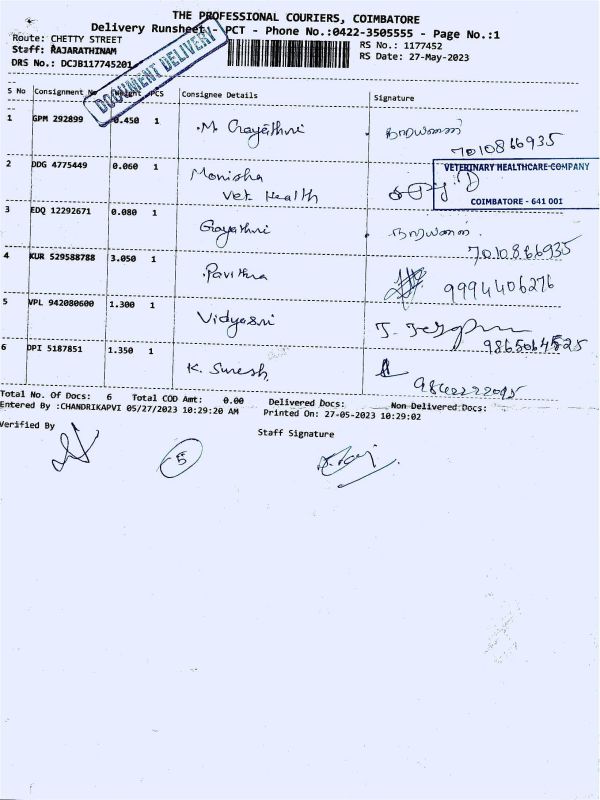 THE PROFESSIONAL COURIERS, COIMBATORE
Delivery Runsheet - PCT - Phone No.:0422-3505555 - Page No.:1
Route: CHETTY STREET
RS No.: 1177452
Staff: RAJARATHINAM
RS Date: 27-May-2023
DRS No.: DCJB117745201
DOCUMENT DELIVERY
S No Consignment No Weight PCS Consignee Details Signature
1 GPM 292899 0.450 1 M. Gayathri நாராயணன் 7010866935
2 DDG 4775449 0.060 1 Monisha
Vet Health
VETERINARY HEALTHCARE COMPANY
COIMBATORE - 641 001
3 EDQ 12292671 0.080 1 Gayathri நாராயணன் 7010866935
4 KUR 529588788 3.050 1 Pavithra 9994406276
5 VPL 942080600 1.300 1 Vidyasri
6 DPI 5187851 1.350 1 K. Suresh
Total No. Of Docs: 6 Total COD Amt: 0.00 Delivered Docs: Non Delivered Docs:
Entered By :CHANDRIKAPVI 05/27/2023 10:29:20 AM Printed On: 27-05-2023 10:29:02
Verified By Staff Signature
5